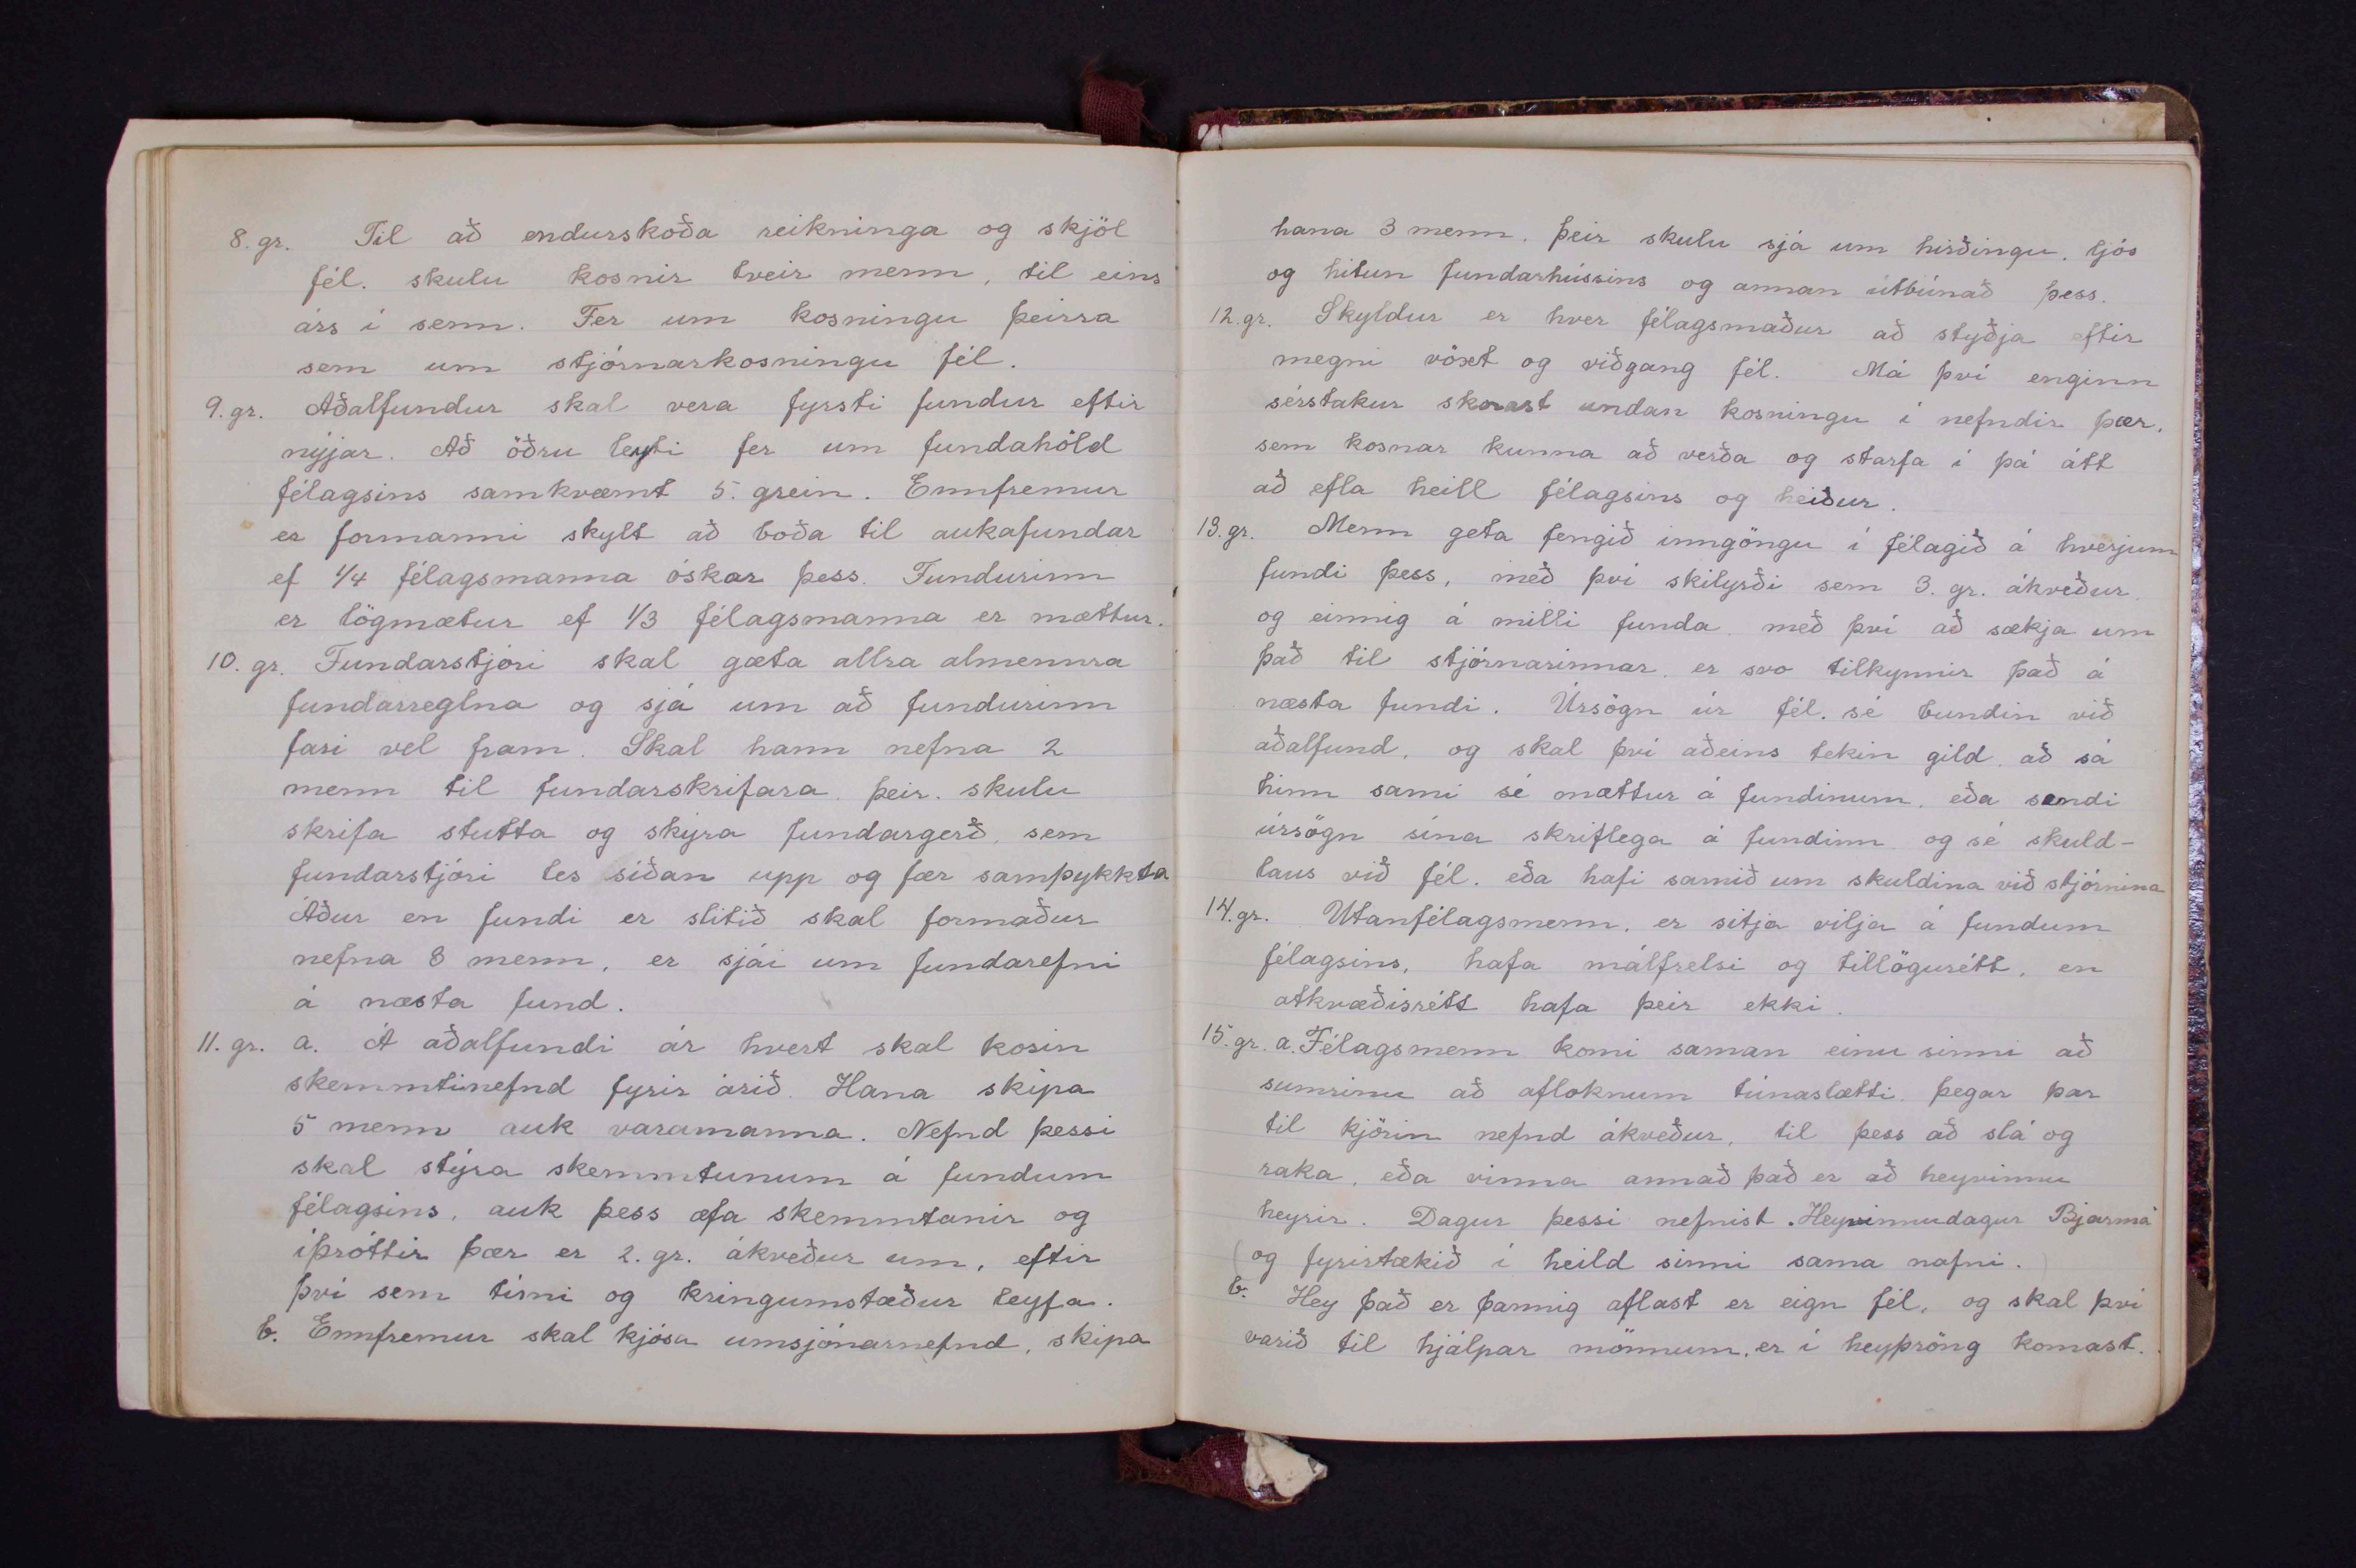 8. gr. Til að endurskoða reikninga og skjöl
fél. skulu kosnir tveir menn, til eins
árs í senn. Fer um kosningu þeirra
sem um stjórnarkosningu fél.
9. gr. Aðalfundur skal vera fyrsti fundur eftir
nýjár. Að öðru leyti fer um fundahöld
félagsins samkvæmt 5. grein. Ennfremur
er formanni skylt að boða til aukafundar
ef 1/4 félagsmanna óskar þess. Fundurinn
er lögmætur ef 1/3 félagsmanna er mættur.
10. gr. Fundarstjóri skal gæta allra almennra
fundarreglna og sjá um að fundurinn
fari vel fram. Skal hann nefna 2
menn til fundarskrifara, þeir skulu
skrifa stutta og skýra fundargerð, sem
fundarstjóri les síðan upp og fær samþykkta
Áður en fundi er slitið skal formaður
nefna 3 menn, er sjái um fundarefni
á næsta fund.
11. gr. a. Á aðalfundi ár hvert skal kosin
skemmtinefnd fyrir árið. Hana skipa
5 menn auk varamanna. Nefnd þessi
skal stýra skemmtunum á fundum
félagsins, auk þess æfa skemmtanir og
íþróttir þær er 2. gr. ákveður um, eftir
því sem tími og kringumstæður leyfa.
b. Ennfremur skal kjósa umsjónarnefnd, skipa
hana 3 menn. Þeir skulu sjá um hirðingu, ljós
og hitun fundarhússins og annan útbúnað þess.
12. gr. Skyldur er hver félagsmaður að styðja eftir
megni vöxt og viðgang fél. Má því enginn
sérstakur skorast undan kosningu í nefndir þær,
sem kosnar kunna að verða og starfa í þá átt
að efla heill félagsins og heiður.
13. gr. Menn geta fengið inngöngu í félagið á hverjum
fundi þess, með því skilyrði sem 3. gr. ákveður,
og einnig á milli funda, með því að sækja um
það til stjórnarinnar, er svo tilkynnir það á
næsta fundi. Úrsögn úr fél. sé bundin við
aðalfund, og skal því aðeins tekin gild, að sá
hinn sami sé mættur á fundinum, eða sendi
úrsögn sína skriflega á fundinn og sé skuld-
laus við fél. eða hafi samið um skuldina við stjórnina
14. gr. Utanfélagsmenn, er sitja vilja á fundum
félagsins, hafa málfrelsi og tillögurétt, en
atkvæðisrétt hafa þeir ekki.
15. gr. a. Félagsmenn komi saman einu sinni að
sumrinu að afloknum túnaslætti, þegar þar
til kjörin nefnd ákveður, til þess að slá og
raka, eða vinna annað það er að heyvinnu
heyrir. Dagur þessi nefnist „Heyvinnudagur Bjarma"
(og fyrirtækið í heild sinni sama nafni.)
b. Hey það er þannig aflast er eign fél, og skal því
varið til hjálpar mönnum, er í heyþröng komast.